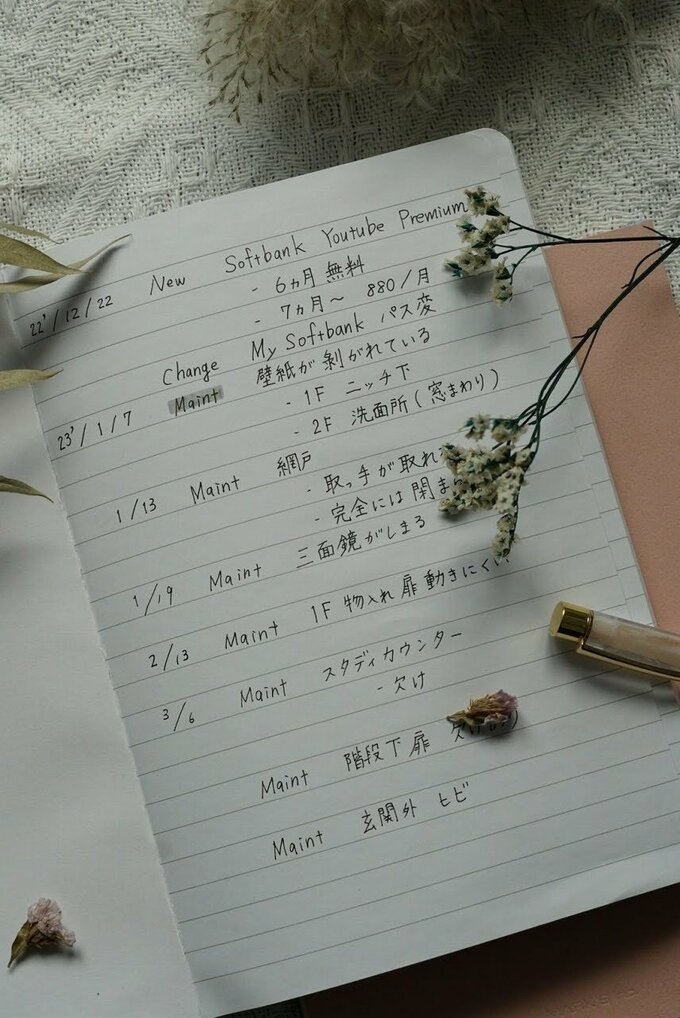 22'/12/22 New Softbank Youtube Premium
- 6カ月 無料
- 7カ月〜 880/月
Change My Softbank パス変
23'/1/7 Maint 壁紙が剥がれている
- 1F ニッチ下
- 2F 洗面所(窓まわり)
1/13 Maint 網戸
- 取っ手が取れ
- 完全には閉ま
1/19 Maint 三面鏡がしまる
2/13 Maint 1F 物入れ扉動きにくい
3/6 Maint スタディカウンター
- 欠け
Maint 階段下扉
Maint 玄関外 ヒビ